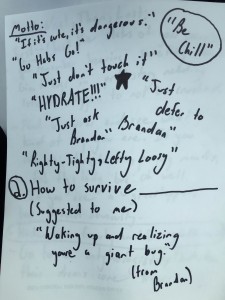 Motto:
"If it's cute, it's dangerous."
"Be Chill"
"Go Habs Go!"
"Just don't touch it"
"HYDRATE!!!"
"Just defer to Brandan"
"Just ask Brandan"
"Righty-Tighty, Lefty Loosy"
2. How to survive ________
(Suggested to me)
"Waking up and realizing
you're a giant bug."
(from
Brandan)